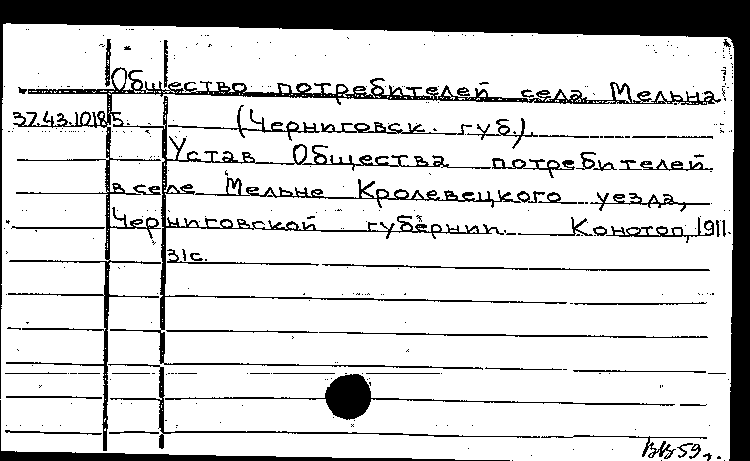 Общество потребителей села Мельна
37.43.10185. (Черниговск. губ.).
Устав Общества потребителей
в селе Мельне Кролевецкого уезда,
Черниговской губернии. Конотоп, 1911.
31с.